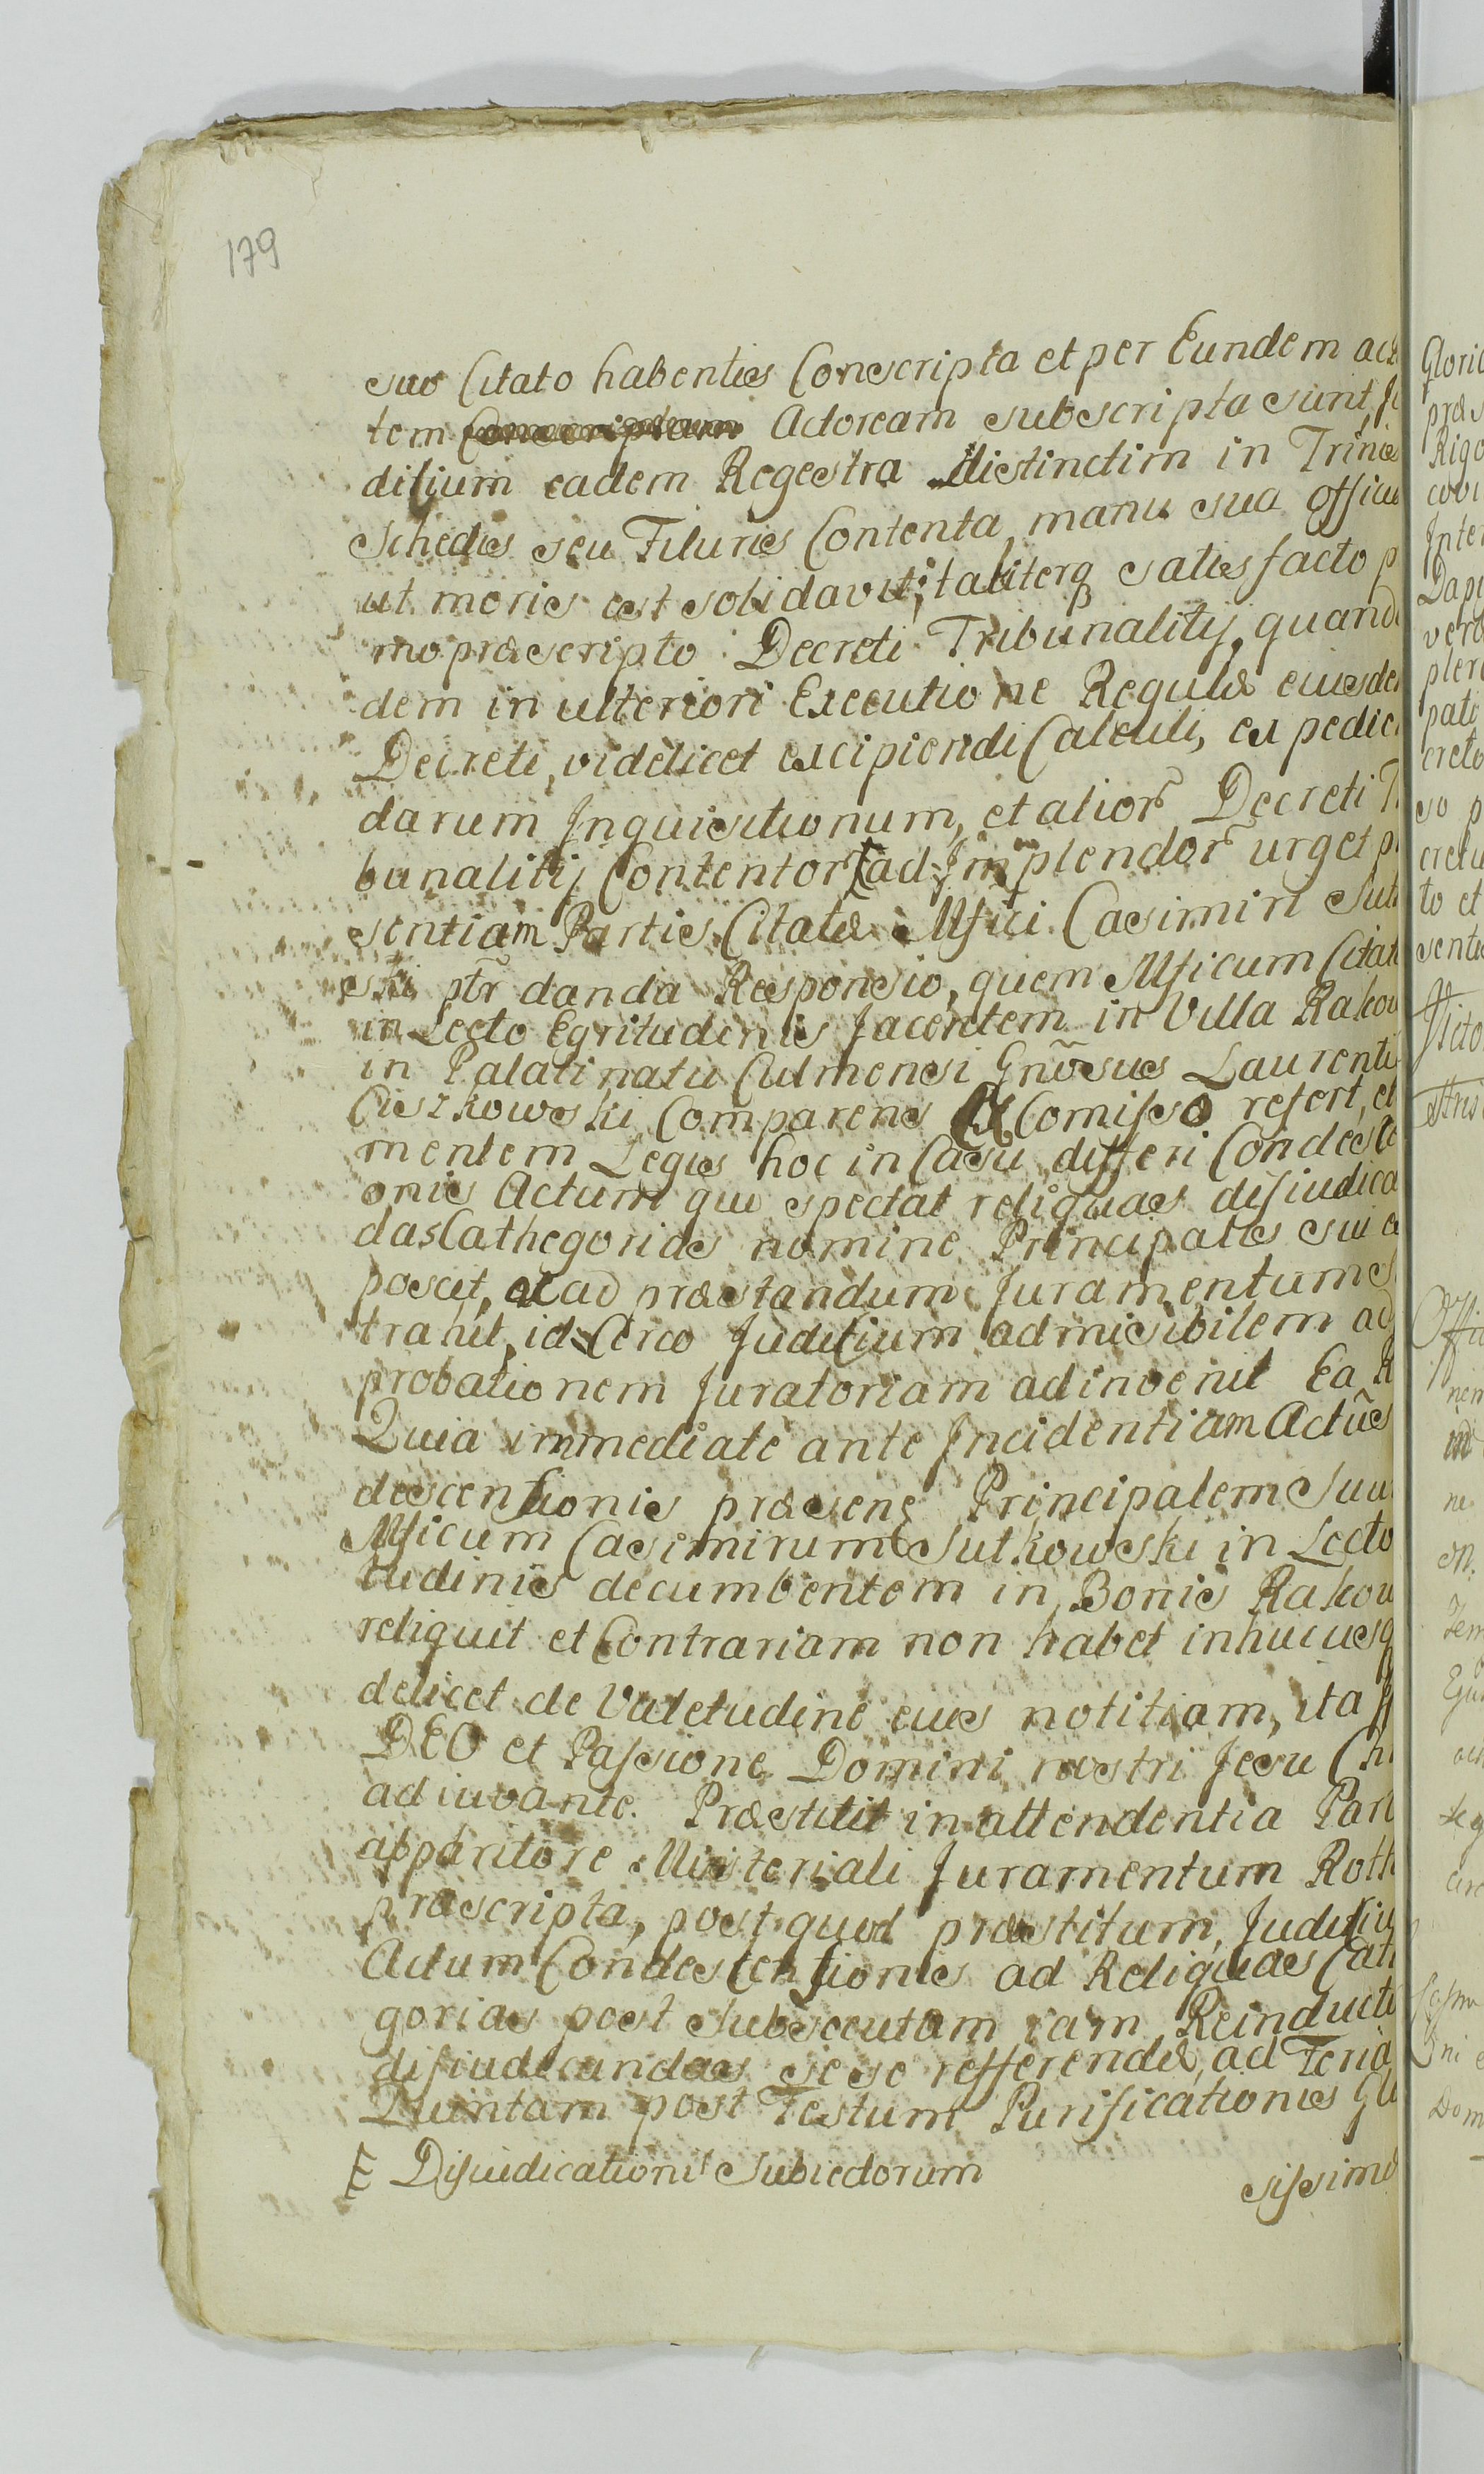 179
suo Citato habentis Conscripta et per Eundem ac
tem Actoream subscripta sunt,
disium eadem Regestra distinctim in Trinis
Schedis seu Filuris Contenta, manu sua
ut moris est solidavit; taliterq satisfacto
mo præscripto Decreti Tribunalitij, quand
dem in ulteriori Executione Regulæ eiusde
Decreti, videlicet excipiendi Calculi, expedien
darum Inquisitionum, et alior Decreti
bunalitij Contentor ad Implendor urget
sentiam Partis Citatæ Mfici Casimiri Sul
ski ptr danda Responsio, quem Mficum Citat
in Lecto Egritudinis Jacentem in Villa Rakow
in Palatinatu Culmensi Gnosus Laurenti
Ciszkowski Comparens Ex Comisso refert, et
mentem Legis hoc in Casu differi Condesce
onis Actum quo spectat reliquas disiudica
das Cathegorias nomine Principalis sui
poscit, et ad præstandum Juramentum
trahit, id Circo Juditium admisibilem ad
probationem Juratoriam adinvenit Ea
Quia immediate ante Incidentiam Actus
descensionis præsens Principalem Suu
Mficum Casimirum Sulkowski in Lecto
tudinis decumbentem in Bonis Rakow
reliquit et Contrariam non habet inhucusq
delicet de Valetudine eius notitiam, ita
DEO et Passione Domini nostri Jesu Ch
adiuvante. Præstitit in attendentia Part
apparitore Misteriali Juramentum Roth
præscripta, post quod præstitum, Juditiu
Actum Condescensionis ad Reliquas Cat
gorias post Subsecutam iam Reinducti
disiudicandas sese refferendæ, ad Feria
Quintam post Festum Purificationis Gl
Disiudicationis Subiectorum
sissimæ